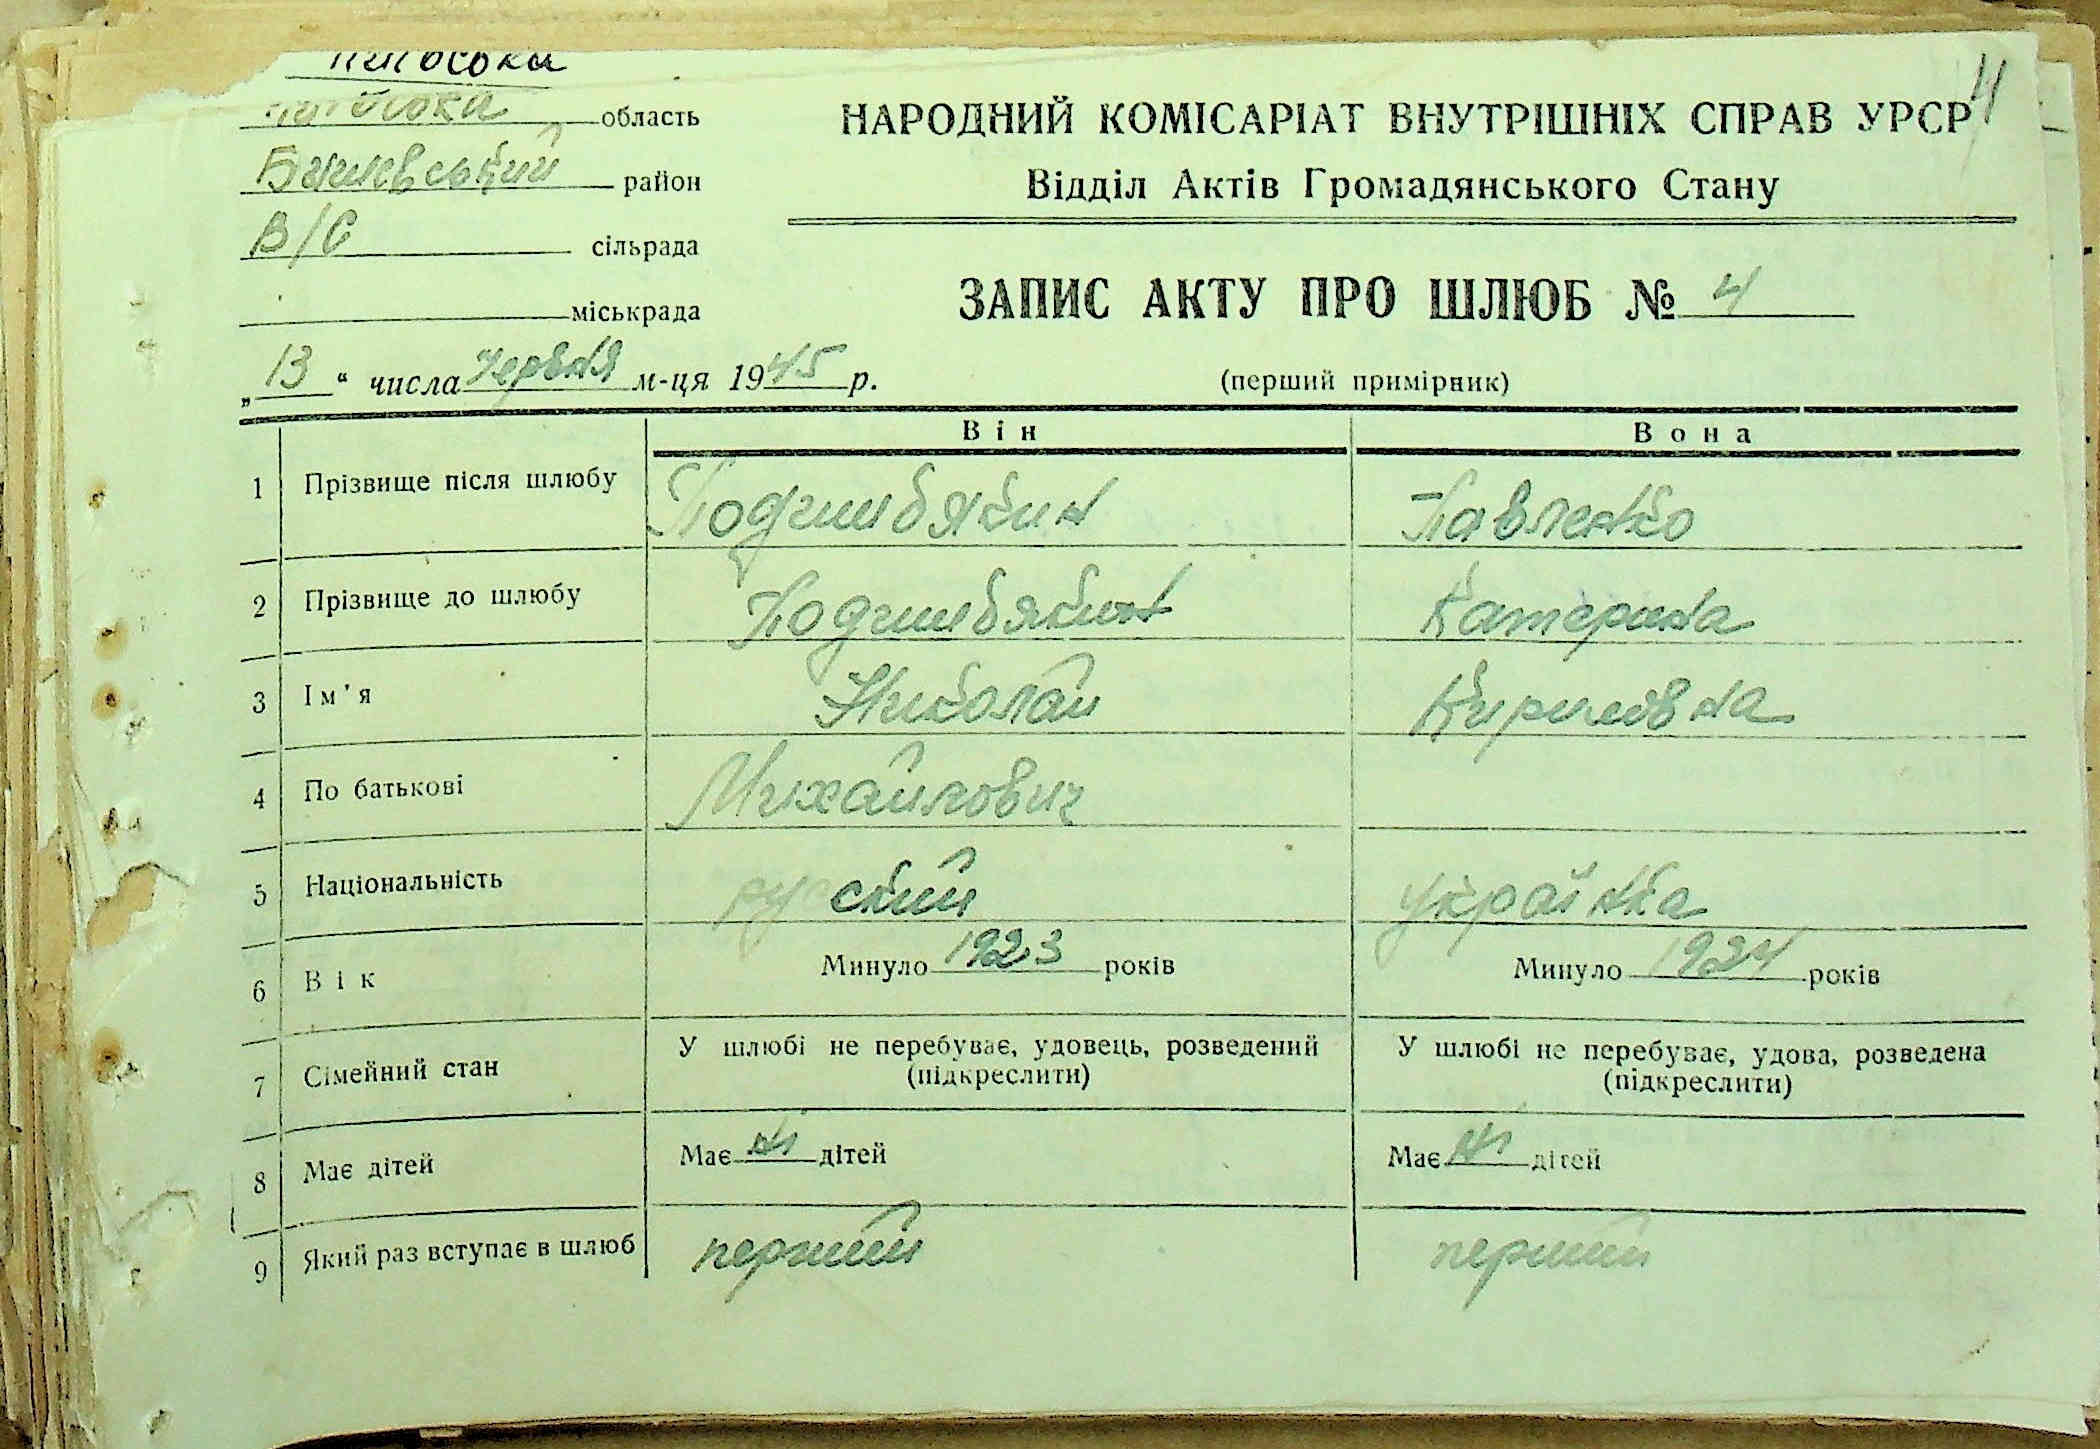 область
НАРОДНИЙ КОМІСАРІАТ ВНУТРІШНІХ СПРАВ УРСР 4
район
Відділ Актів Громадянського Стану
В/С сільрада
міськрада
ЗАПИС АКТУ ПРО ШЛЮБ № 4
„13“ числа Червня м-ця 1945 р.
(перший примірник)
Він Вона
1 Прізвище після шлюбу Подшибякин Павленко
2 Прізвище до шлюбу Подшибякин Катерина
3 Ім'я Николай Кирилівна
4 По батькові Михайлович
5 Національність руский українка
6 Вік Минуло 1923 років Минуло 1924 років
7 Сімейний стан У шлюбі не перебуває, удовець, розведений У шлюбі не перебуває, удова, розведена
(підкреслити) (підкреслити)
8 Має дітей Має ні дітей Має ні дітей
9 Який раз вступає в шлюб перший перший